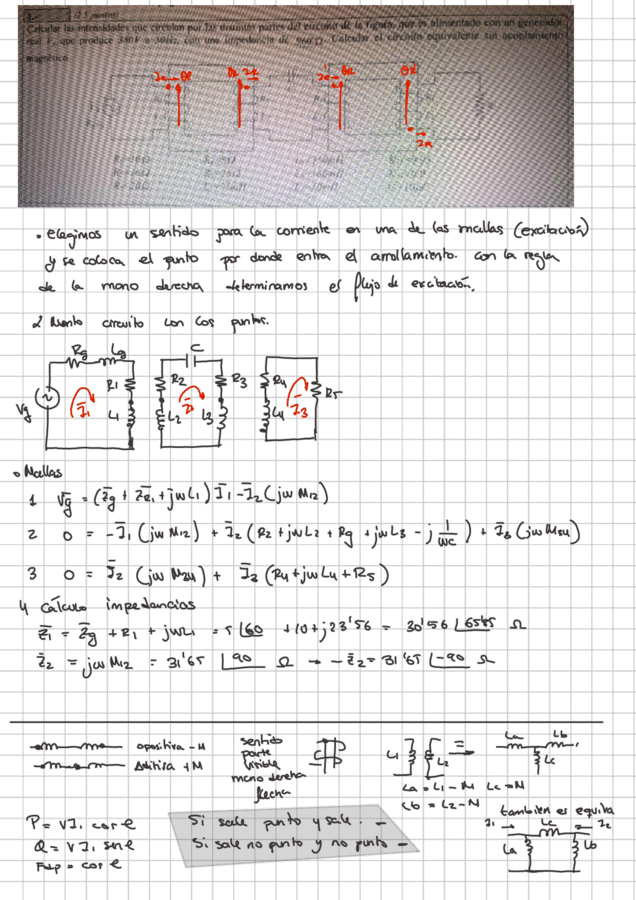 (2.5 puntos)
Calcular las intensidades que circulan por las distintas partes del circuito de la figura, que es alimentado con un generador
real V, que produce 380V a 50Hz, con una impedancia de Calcular el circuito equivalente sin acoplamiento
magnético
• elegimos un sentido para la corriente en una de las mallas (excitación)
y se coloca el punto por donde entra el arrollamiento. con la regla
de la mano derecha determinamos el flujo de excitación.
2 Monto circuito con los puntos.
Rg Lg C
R1 R2 R3 R4 R5
Vg I1 L1 L2 L3 L4 I3
• Mallas
1 Vg = (Zg + ZR1 + jwL1) I1 - I2 (jw M12)
2 0 = - I1 (jw M12) + I2 (R2 + jwL2 + Rg + jwL3 - j 1/wc) + I3 (jw M34)
3 0 = I2 (jw M34) + I3 (R4 + jwL4 + R5)
4 Cálculo impedancias
Z1 = Zg + R1 + jwL1 = 5 |60 + 10 + j23'56 = 30'56 Ω
Z2 = jw M12 = 31'65 |90 Ω → - Z2 = 31'65 |-90 Ω
opositiva - M
Aditiva + M
sentido
parte
visible
mano derecha
flecha
L1 L2 =
La Lb
Lc
La = L1 - M Lc = M
Lb = L2 - M
tambien es equiva
I1 Lc I2
La Lb
P = V I1 cos φ
Q = V I1 sen φ
Fdp = cos φ
Si sale punto y sale. -
Si sale no punto y no punto -